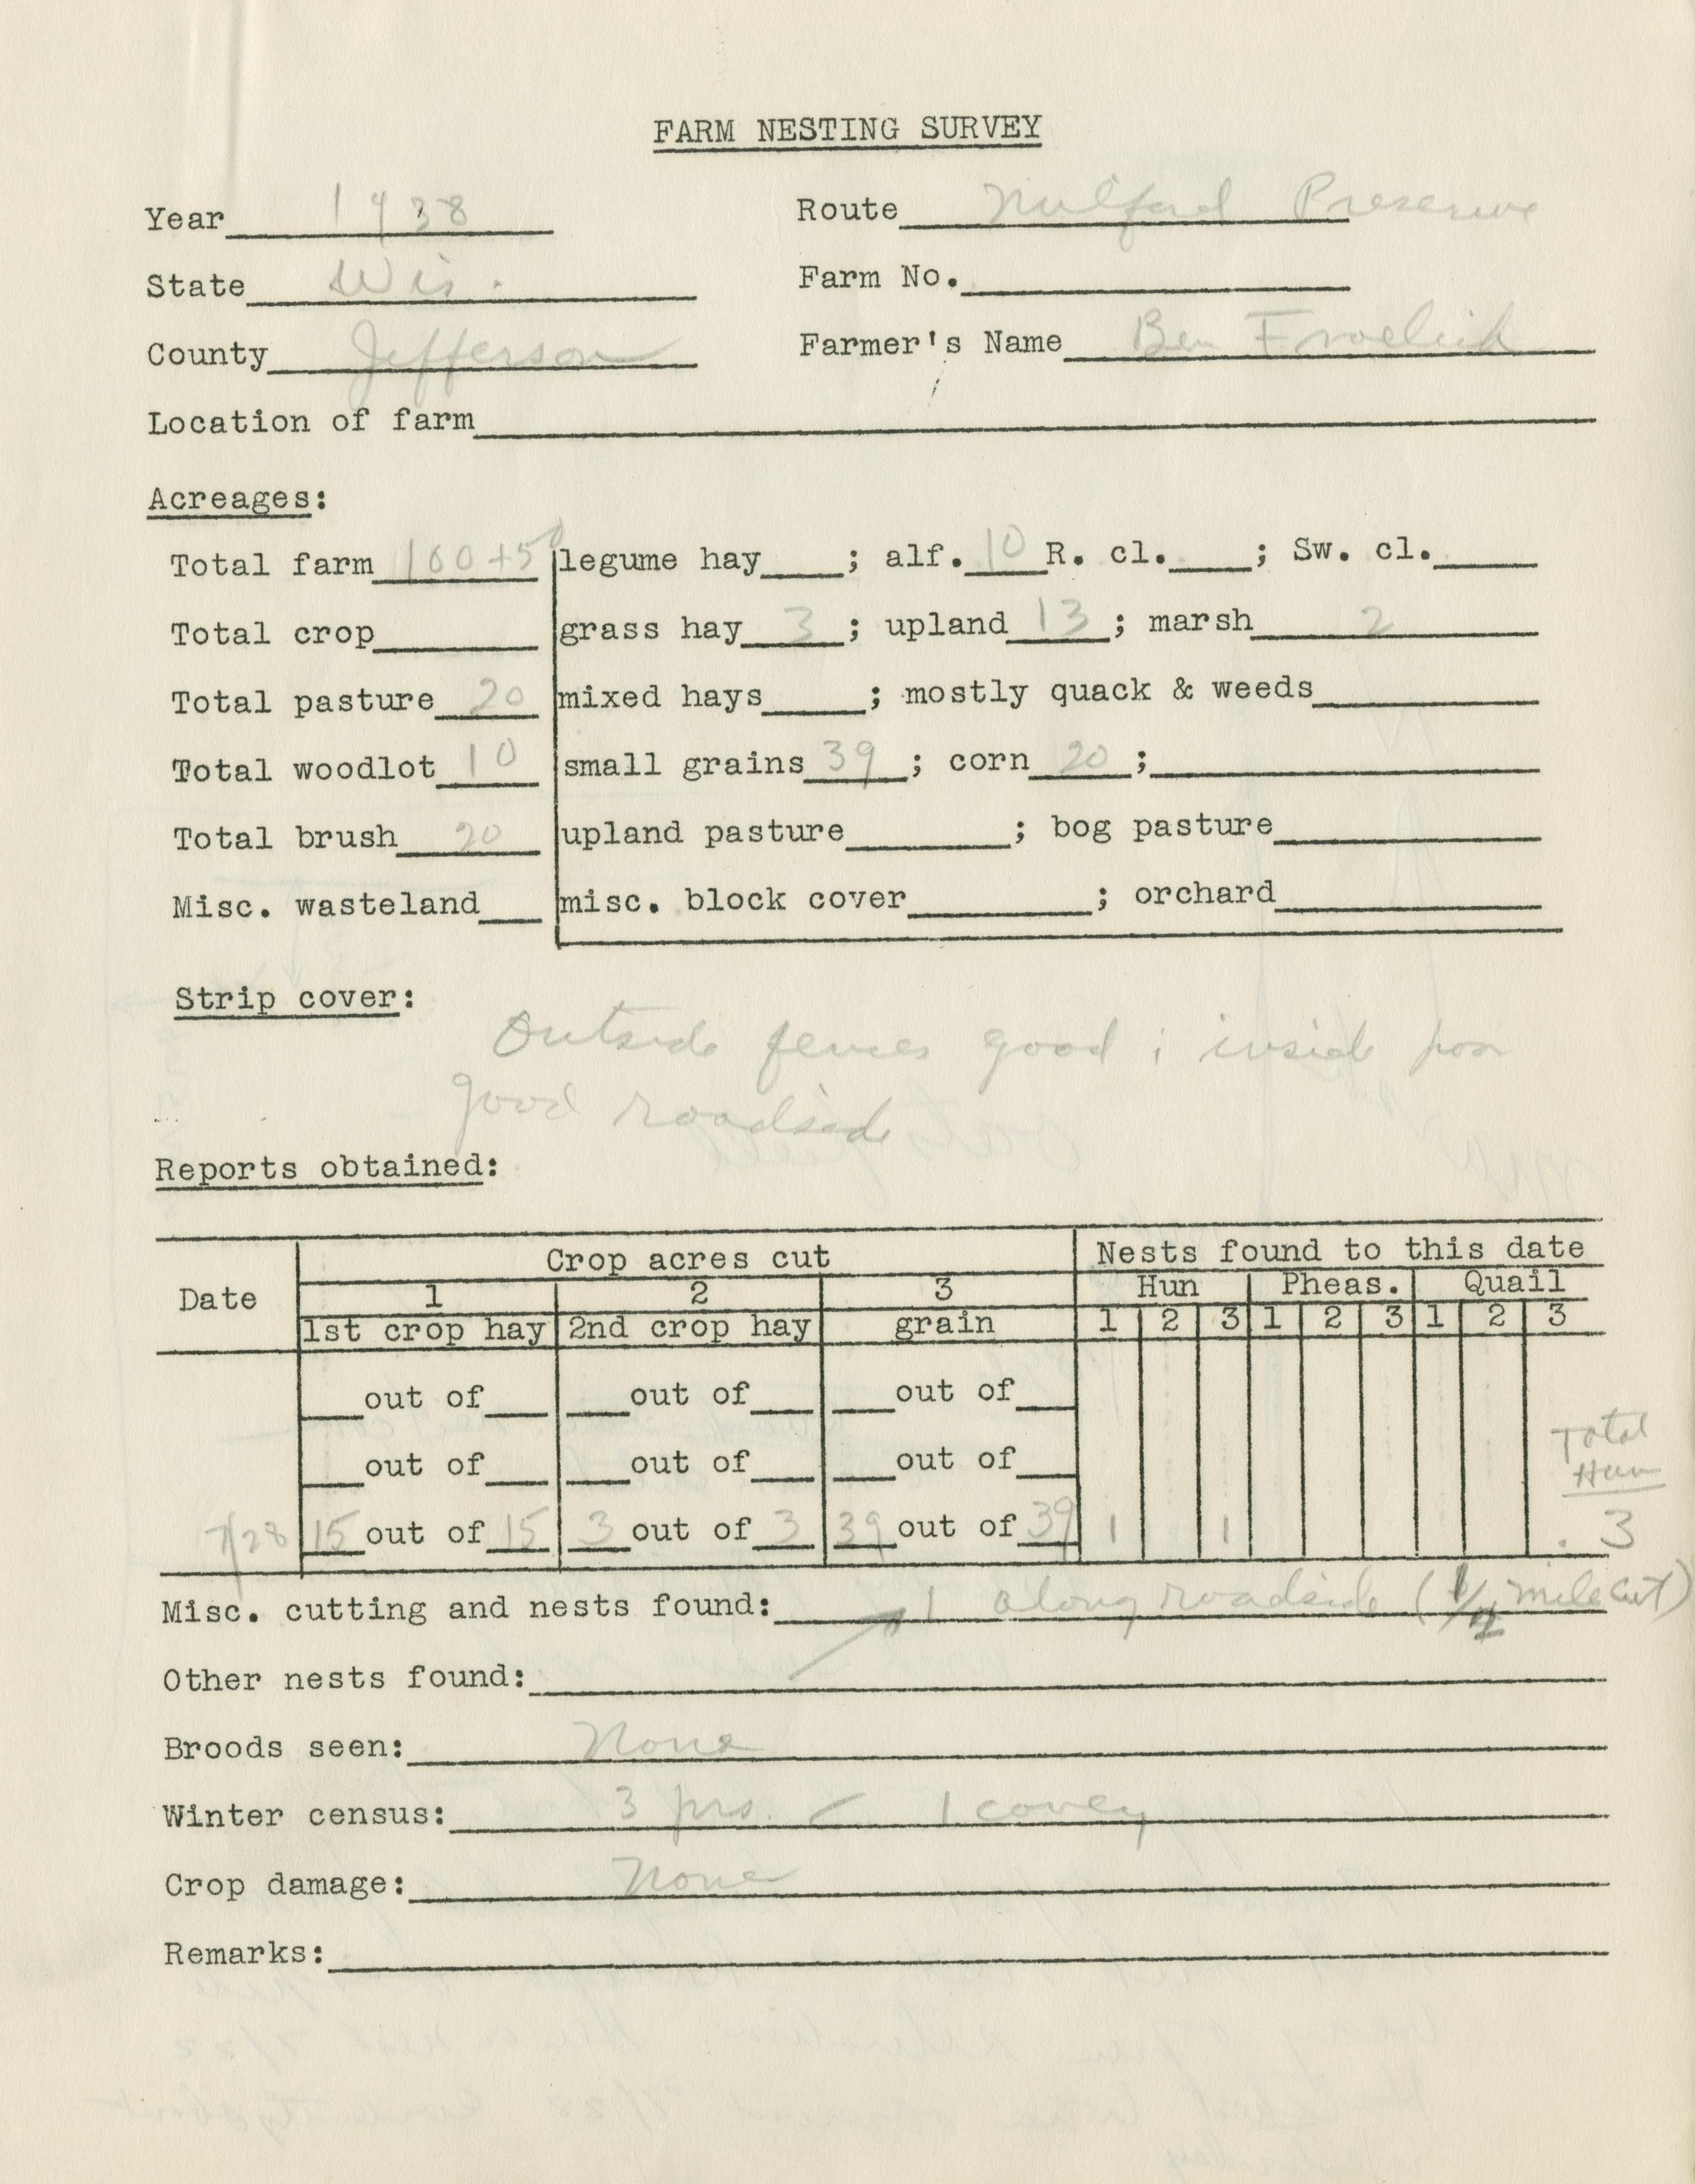 FARM NESTING SURVEY
Year 1938 Route Milford Preserve
State Wis. Farm No.
County Jefferson Farmer's Name Ben Froelich
Location of farm
Acreages:
Total farm 100+50 legume hay ; alf. 10 R. cl. ; Sw. cl.
Total crop grass hay 3 ; upland 13 ; marsh 2
Total pasture 20 mixed hays ; mostly quack & weeds
Total woodlot 10 small grains 39 ; corn 20 ;
Total brush 20 upland pasture ; bog pasture
Misc. wasteland misc. block cover ; orchard
Strip cover:
Outside fences good ; inside poor
good roadside
Reports obtained:
Crop acres cut Nests found to this date
Date 1 2 3 Hun Pheas. Quail
1st crop hay 2nd crop hay grain 1 2 3 1 2 3 1 2 3
out of out of out of
Total
out of out of out of Hun
7/28 15 out of 15 3 out of 3 39 out of 39 1 1 3
Misc. cutting and nests found: 1 along roadside (1/2 mile cut)
Other nests found:
Broods seen: None
Winter census: 3 prs. 1 covey
Crop damage: None
Remarks: